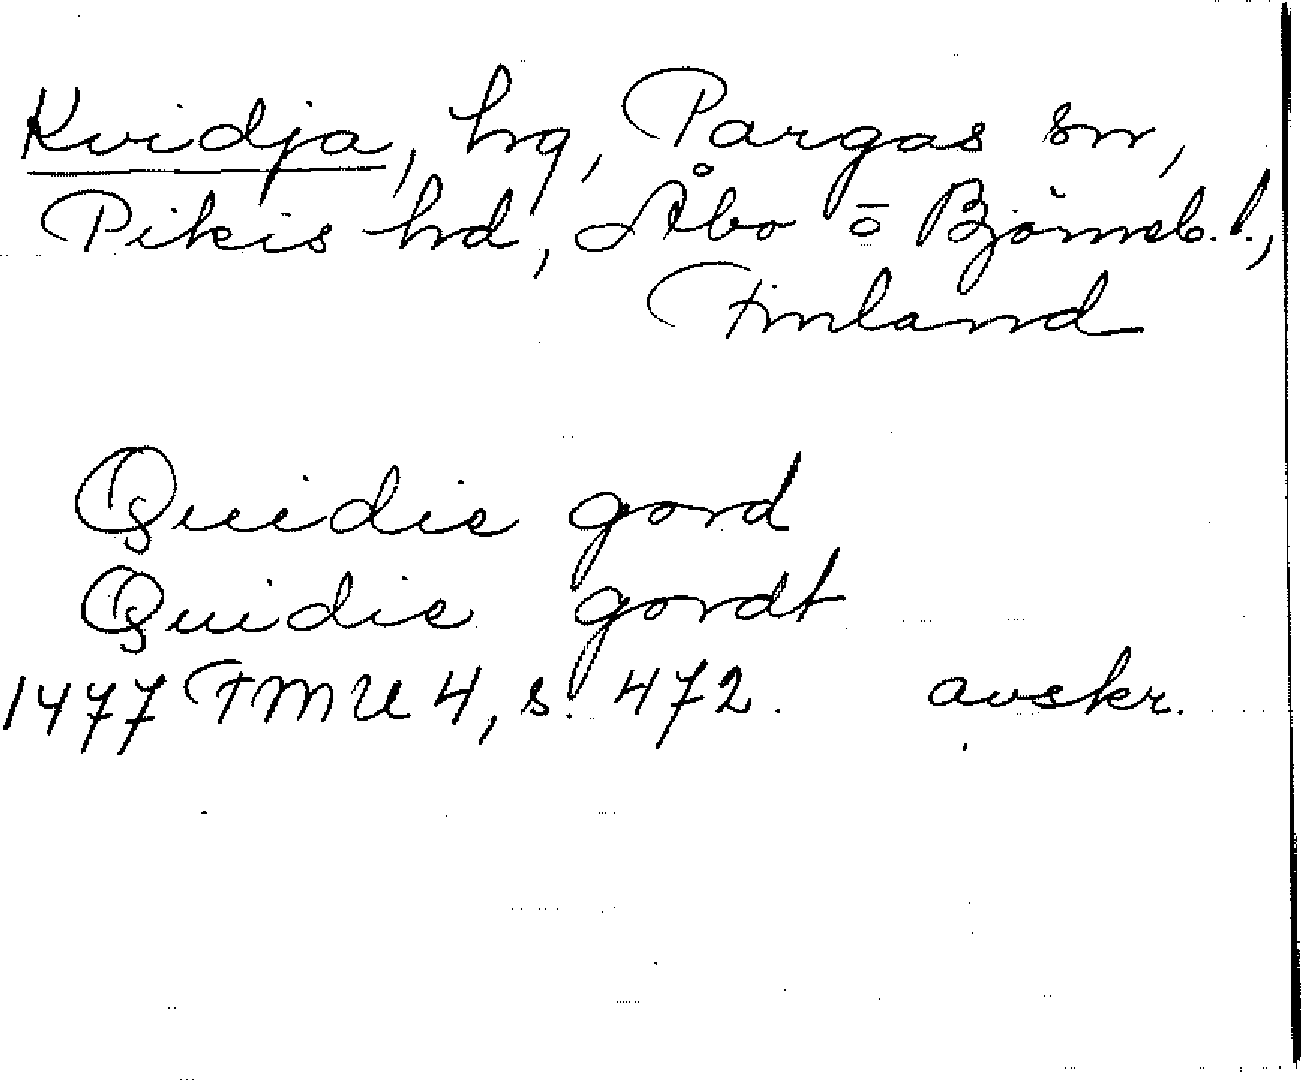 Kvidja, hg, Pargas sn,
Pikis hd, Åbo o Björneb. l.,
Finland
Quidie gord
Quidie gordt
1477 FMU 4, s. 472. avskr.